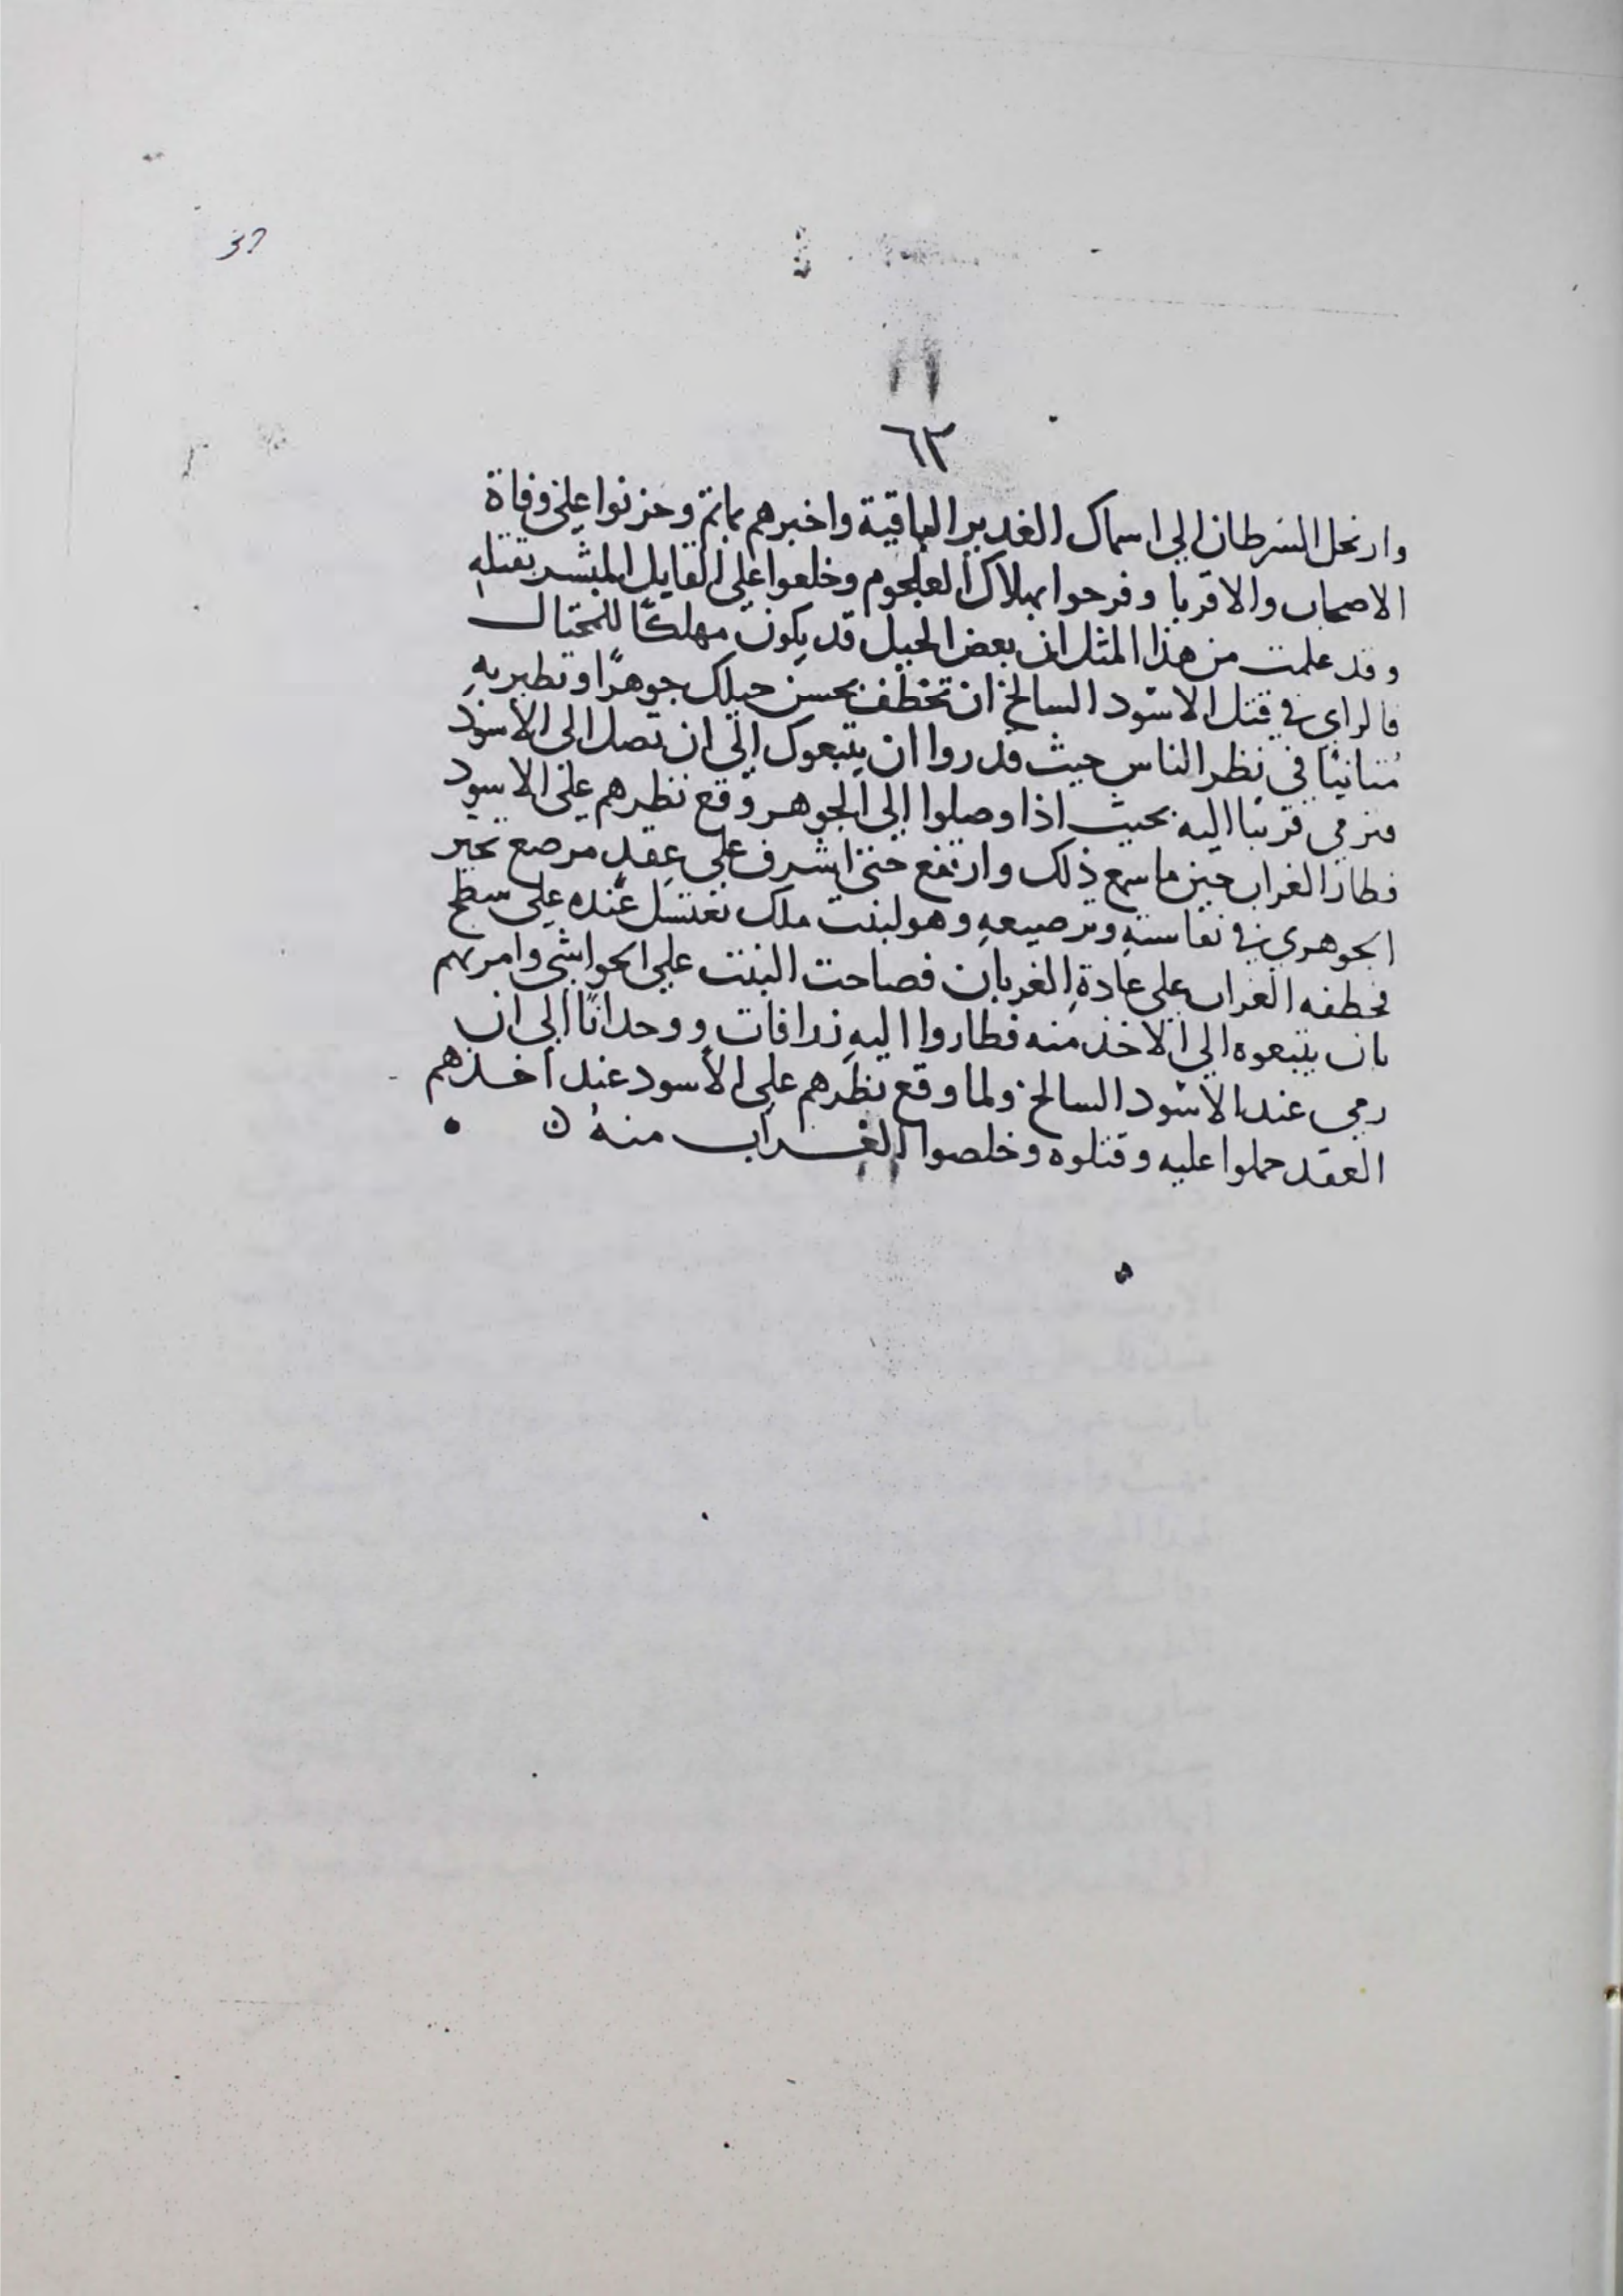 32
٦٣
وارتحل السرطان الى اسماك الغدير الباقية واخبرهم بماتم وحزنوا على وفاة
الاصحاب والاقربا وفرحوا بهلاك العلجوم وخلعوا على القايل المبشر بقتله
وقد علمت من هذا المثل ان بعض الحيل قد يكون مهلكًا للمحتال
فالراي في قتل الاسود السالخ ان تخطف بحسن حيلك جوهرًا وتطير به
متانيًا في نظر الناس حيث قدروا ان يتبعوك الى ان تصل الى الاسود
فترمي قريبا اليه بحيث اذا وصلوا الى الجوهر وقع نظرهم على الاسود
فطار الغراب حين ما سمع ذلك وارتفع حتى اشرف على عقد مرصع تحير
الجوهري في نفاسته وترصيعه وهو لبنت ملك تغتسل عنده على سطح
فخطفه الغراب على عادة الغربان فصاحت البنت على الحواشي وامرتهم
بان يتبعوه الى الاخذ منه فطاروا اليه زرافات ووحدانًا الى ان
رمى عند الاسود السالخ ولما وقع نظرهم على الاسود عند اخذهم
العقد حملوا عليه وقتلوه وخلصوا الغراب منه